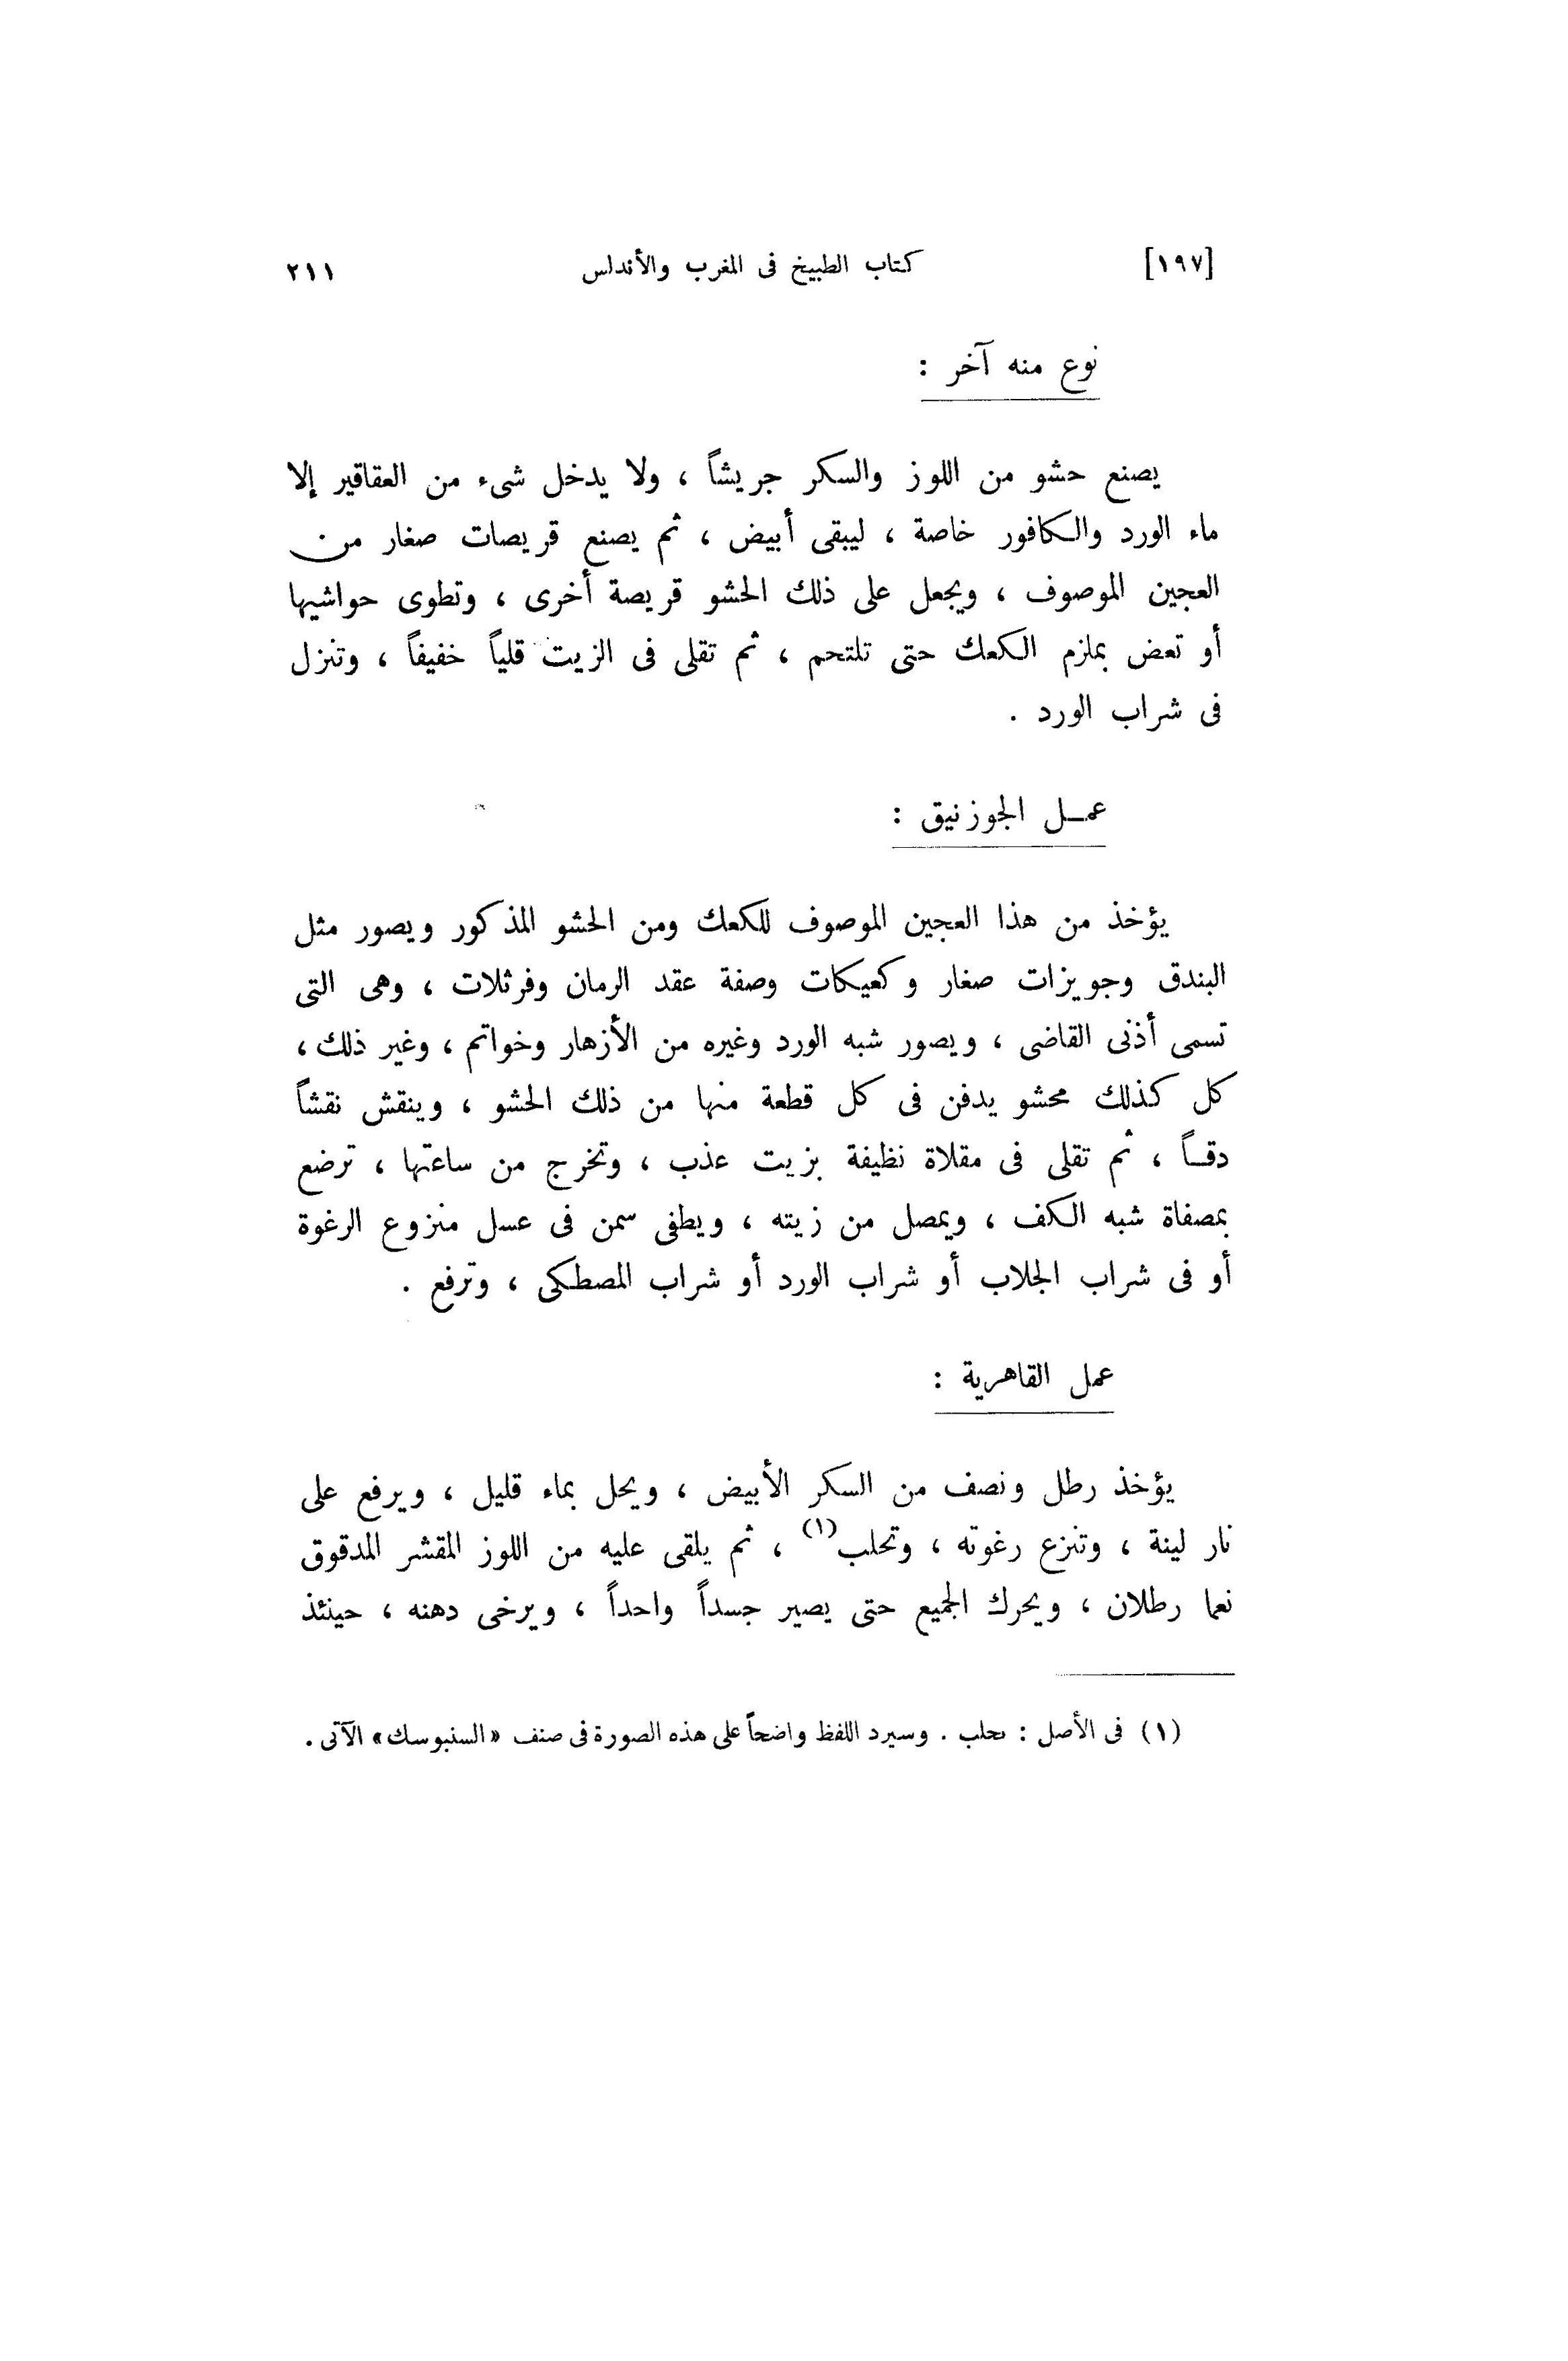 [١٩٧] كتاب الطبيخ فى المغرب والأندلس ٢١١
نوع منه آخر :
يصنع حشو من اللوز والسكر جريشاً ، ولا يدخل شىء من العقاقير إلا
ماء الورد والكافور خاصة ، ليبقى أبيض ، ثم يصنع قريصات صغار من
العجين الموصوف ، ويجعل على ذلك الحشو قريصة أخرى ، وتطوى حواشيها
أو تعض بملزم الكعك حتى تلتحم ، ثم تقلى فى الزيت قلياً خفيفاً ، وتنزل
فى شراب الورد .
عمـل الجوزنيق :
يؤخذ من هذا العجين الموصوف للكعك ومن الحشو المذكور ويصور مثل
البندق وجويزات صغار وكعيكات وصفة عقد الرمان وفرثلات ، وهى التى
تسمى أذنى القاضى ، ويصور شبه الورد وغيره من الأزهار وخواتم ، وغير ذلك ،
كل كذلك محشو يدفن فى كل قطعة منها من ذلك الحشو ، وينقش نقشاً
دقـاً ، ثم تقلى فى مقلاة نظيفة بزيت عذب ، وتخرج من ساعتها ، ترضع
بمصفاة شبه الكف ، ويمصل من زيته ، ويطفى سمن فى عسل منزوع الرغوة
أو فى شراب الجلاب أو شراب الورد أو شراب المصطكى ، وترفع .
عمل القاهرية :
يؤخذ رطل ونصف من السكر الأبيض ، ويحل بماء قليل ، ويرفع على
نار لينة ، وتنزع رغوته ، وتحلب(١) ، ثم يلقى عليه من اللوز المقشر المدقوق
نعما رطلان ، ويحرك الجميع حتى يصير جسداً واحداً ، ويرخى دهنه ، حينئذ
(١) فى الأصل : ىحلب . وسيرد اللفظ واضحاً على هذه الصورة فى صنف «السنبوسك» الآتى .